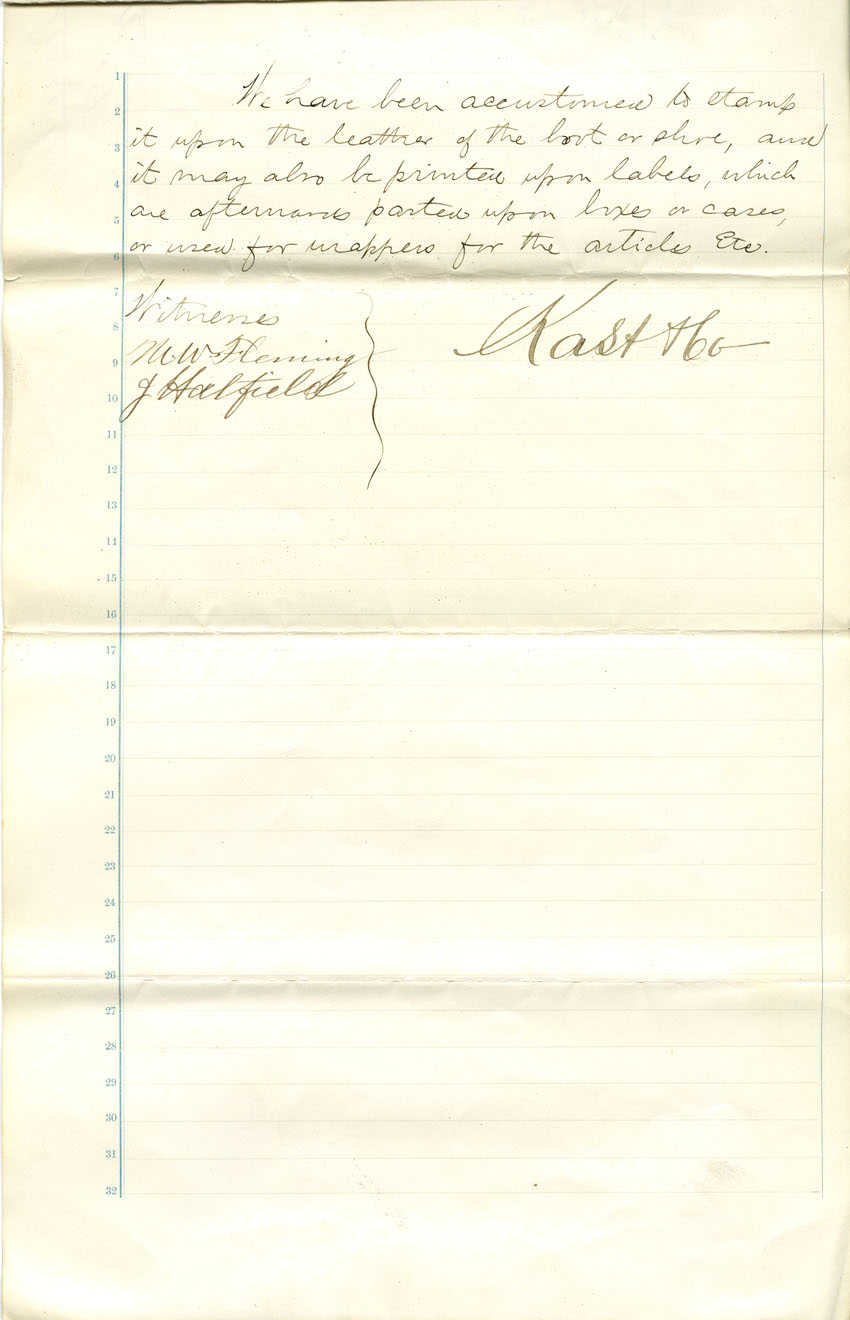 1 We have been accustomed to stamp
2 it upon the leather of the boot or shoe, and
3 it may also be printed upon labels, which
4 are afterwards pasted upon boxes or cases,
5 or used for wrappers for the articles Etc.
6
7 Witnesses
8 M. W. Fleming Kast & Co
9 J Hatfield
10
11
12
13
14
15
16
17
18
19
20
21
22
23
24
25
26
27
28
29
30
31
32